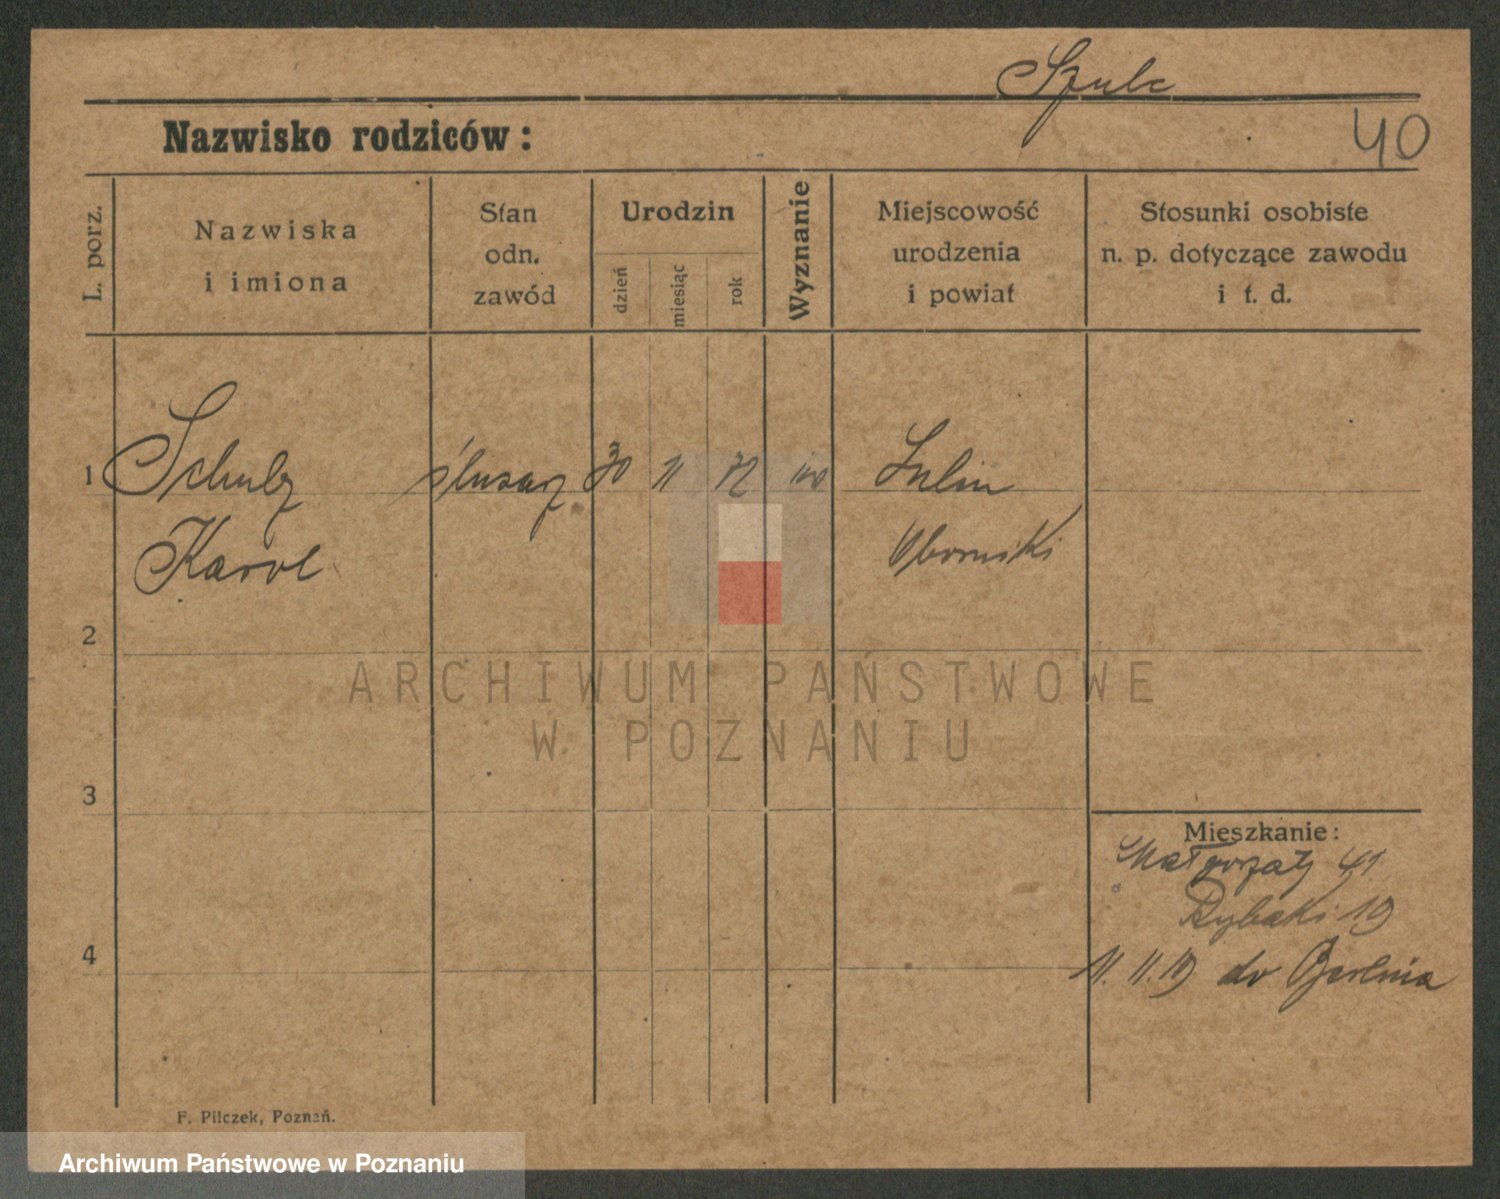 Szulc
Nazwisko rodziców:
40
L. porz.
Nazwiska
i imiona
Stan
odn.
zawód
Urodzin
dzień
miesiąc
rok
Wyznanie
Miejscowość
urodzenia
i powiat
Stosunki osobiste
n. p. dotyczące zawodu
i t. d.
1
Schulz
Karol
ślusarz
30
11
72
Oborniki
2
ARCHIWUM PAŃSTWOWE
W POZNANIU
3
Mieszkanie:
Małgorzaty 41
Rybaki 19
4
11. 11. 19 do Berlina
F. Pilczek, Poznań.
Archiwum Państwowe w Poznaniu